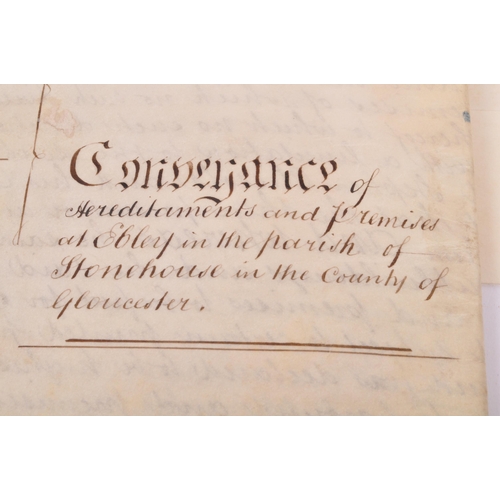 Conveyance of
Hereditaments and Premises
at Ebley in the parish of
Stonehouse in the County of
Gloucester.